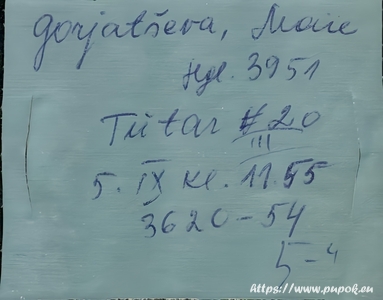 Gorjatševa, Maie
Hgl. 3951
Tütar #20
III
5. IX kl. 11.55
3620-54
5-4
https://www.pupok.eu